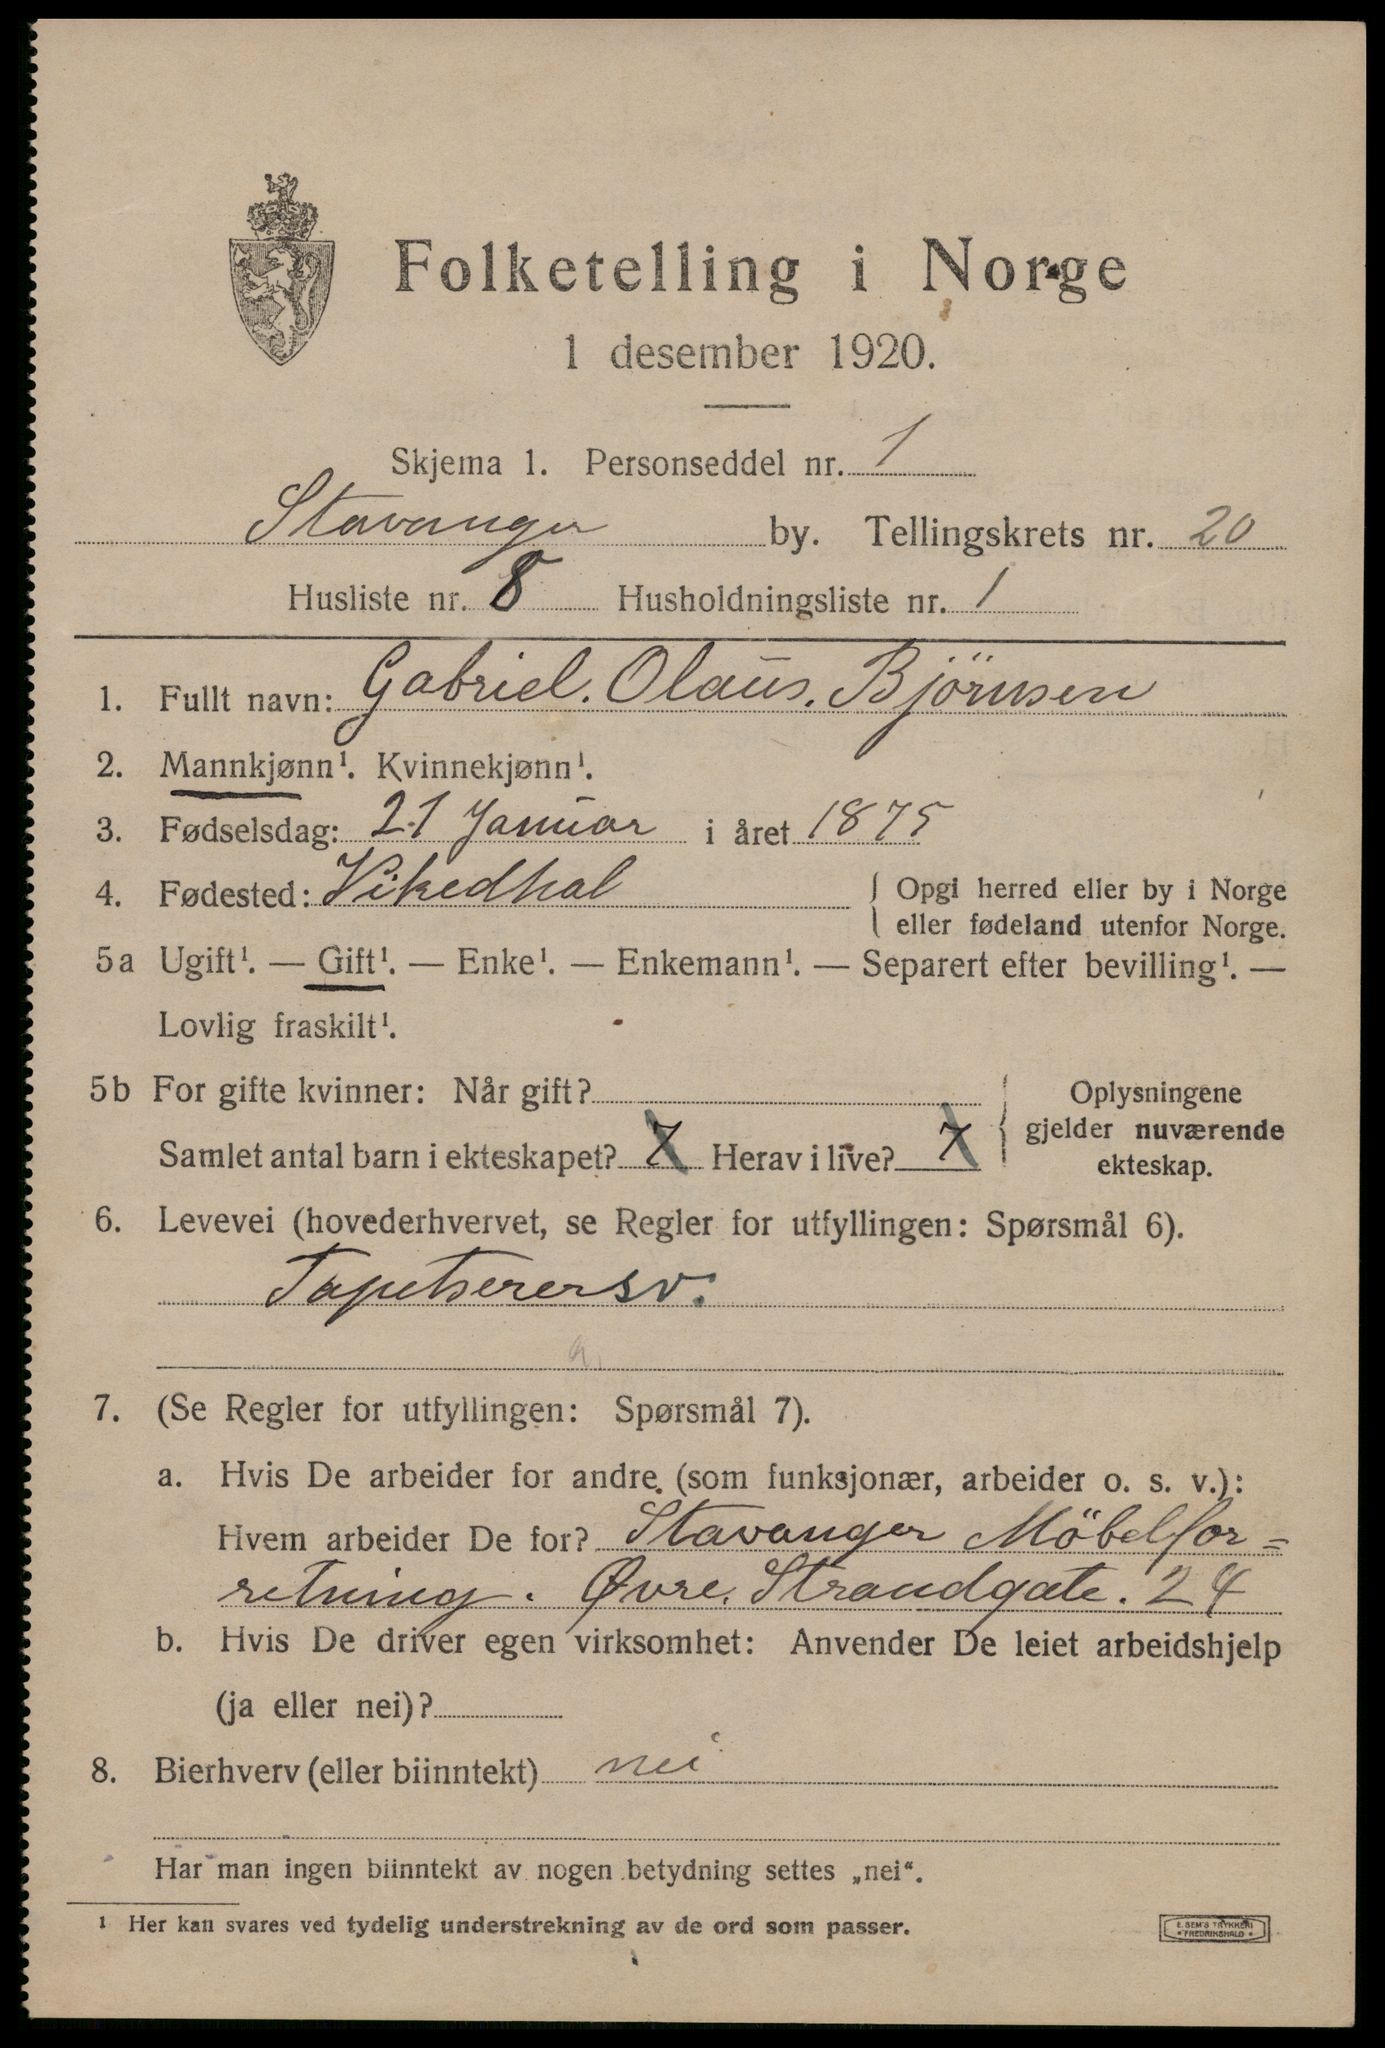 Folketelling i Norge
1 desember 1920.
Skjema 1. Personseddel nr. 1
Stavanger by. Tellingskrets nr. 20
Husliste nr. 8 Husholdningsliste nr. 1
1. Fullt navn: Gabriel. Olaus. Björnsen
2. Mannkjønn¹. Kvinnekjønn¹.
3. Fødselsdag: 21 Januar i året 1875
4. Fødested: Vikedhal { Opgi herred eller by i Norge
eller fødeland utenfor Norge.
5a Ugift¹. — Gift¹. — Enke¹. — Enkemann¹. — Separert efter bevilling¹. —
Lovlig fraskilt¹.
5b For gifte kvinner: Når gift?
Samlet antal barn i ekteskapet? 7 Herav i live? 7
Oplysningene
gjelder nuværende
ekteskap.
6. Levevei (hovederhvervet, se Regler for utfyllingen: Spørsmål 6).
Tapetserersv.
7. (Se Regler for utfyllingen: Spørsmål 7).
a. Hvis De arbeider for andre (som funksjonær, arbeider o. s. v.):
Hvem arbeider De for? Stavanger Möbelfor=
retning. Øvre. Strandgate. 24
b. Hvis De driver egen virksomhet: Anvender De leiet arbeidshjelp
(ja eller nei)?
8. Bierhverv (eller biinntekt) nei
Har man ingen biinntekt av nogen betydning settes „nei“.
¹ Her kan svares ved tydelig understrekning av de ord som passer.
E. SEM'S TRYKKERI
* FREDRIKSHALD *